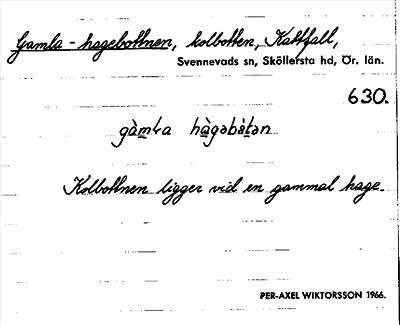 Gamla-hagebottnen, kolbotten, Kattfall,
Svennevads sn, Sköllersta hd, Ör. län.
630.
Kolbottnen ligger vid en gammal hage.
PER-AXEL WIKTORSSON 1966.